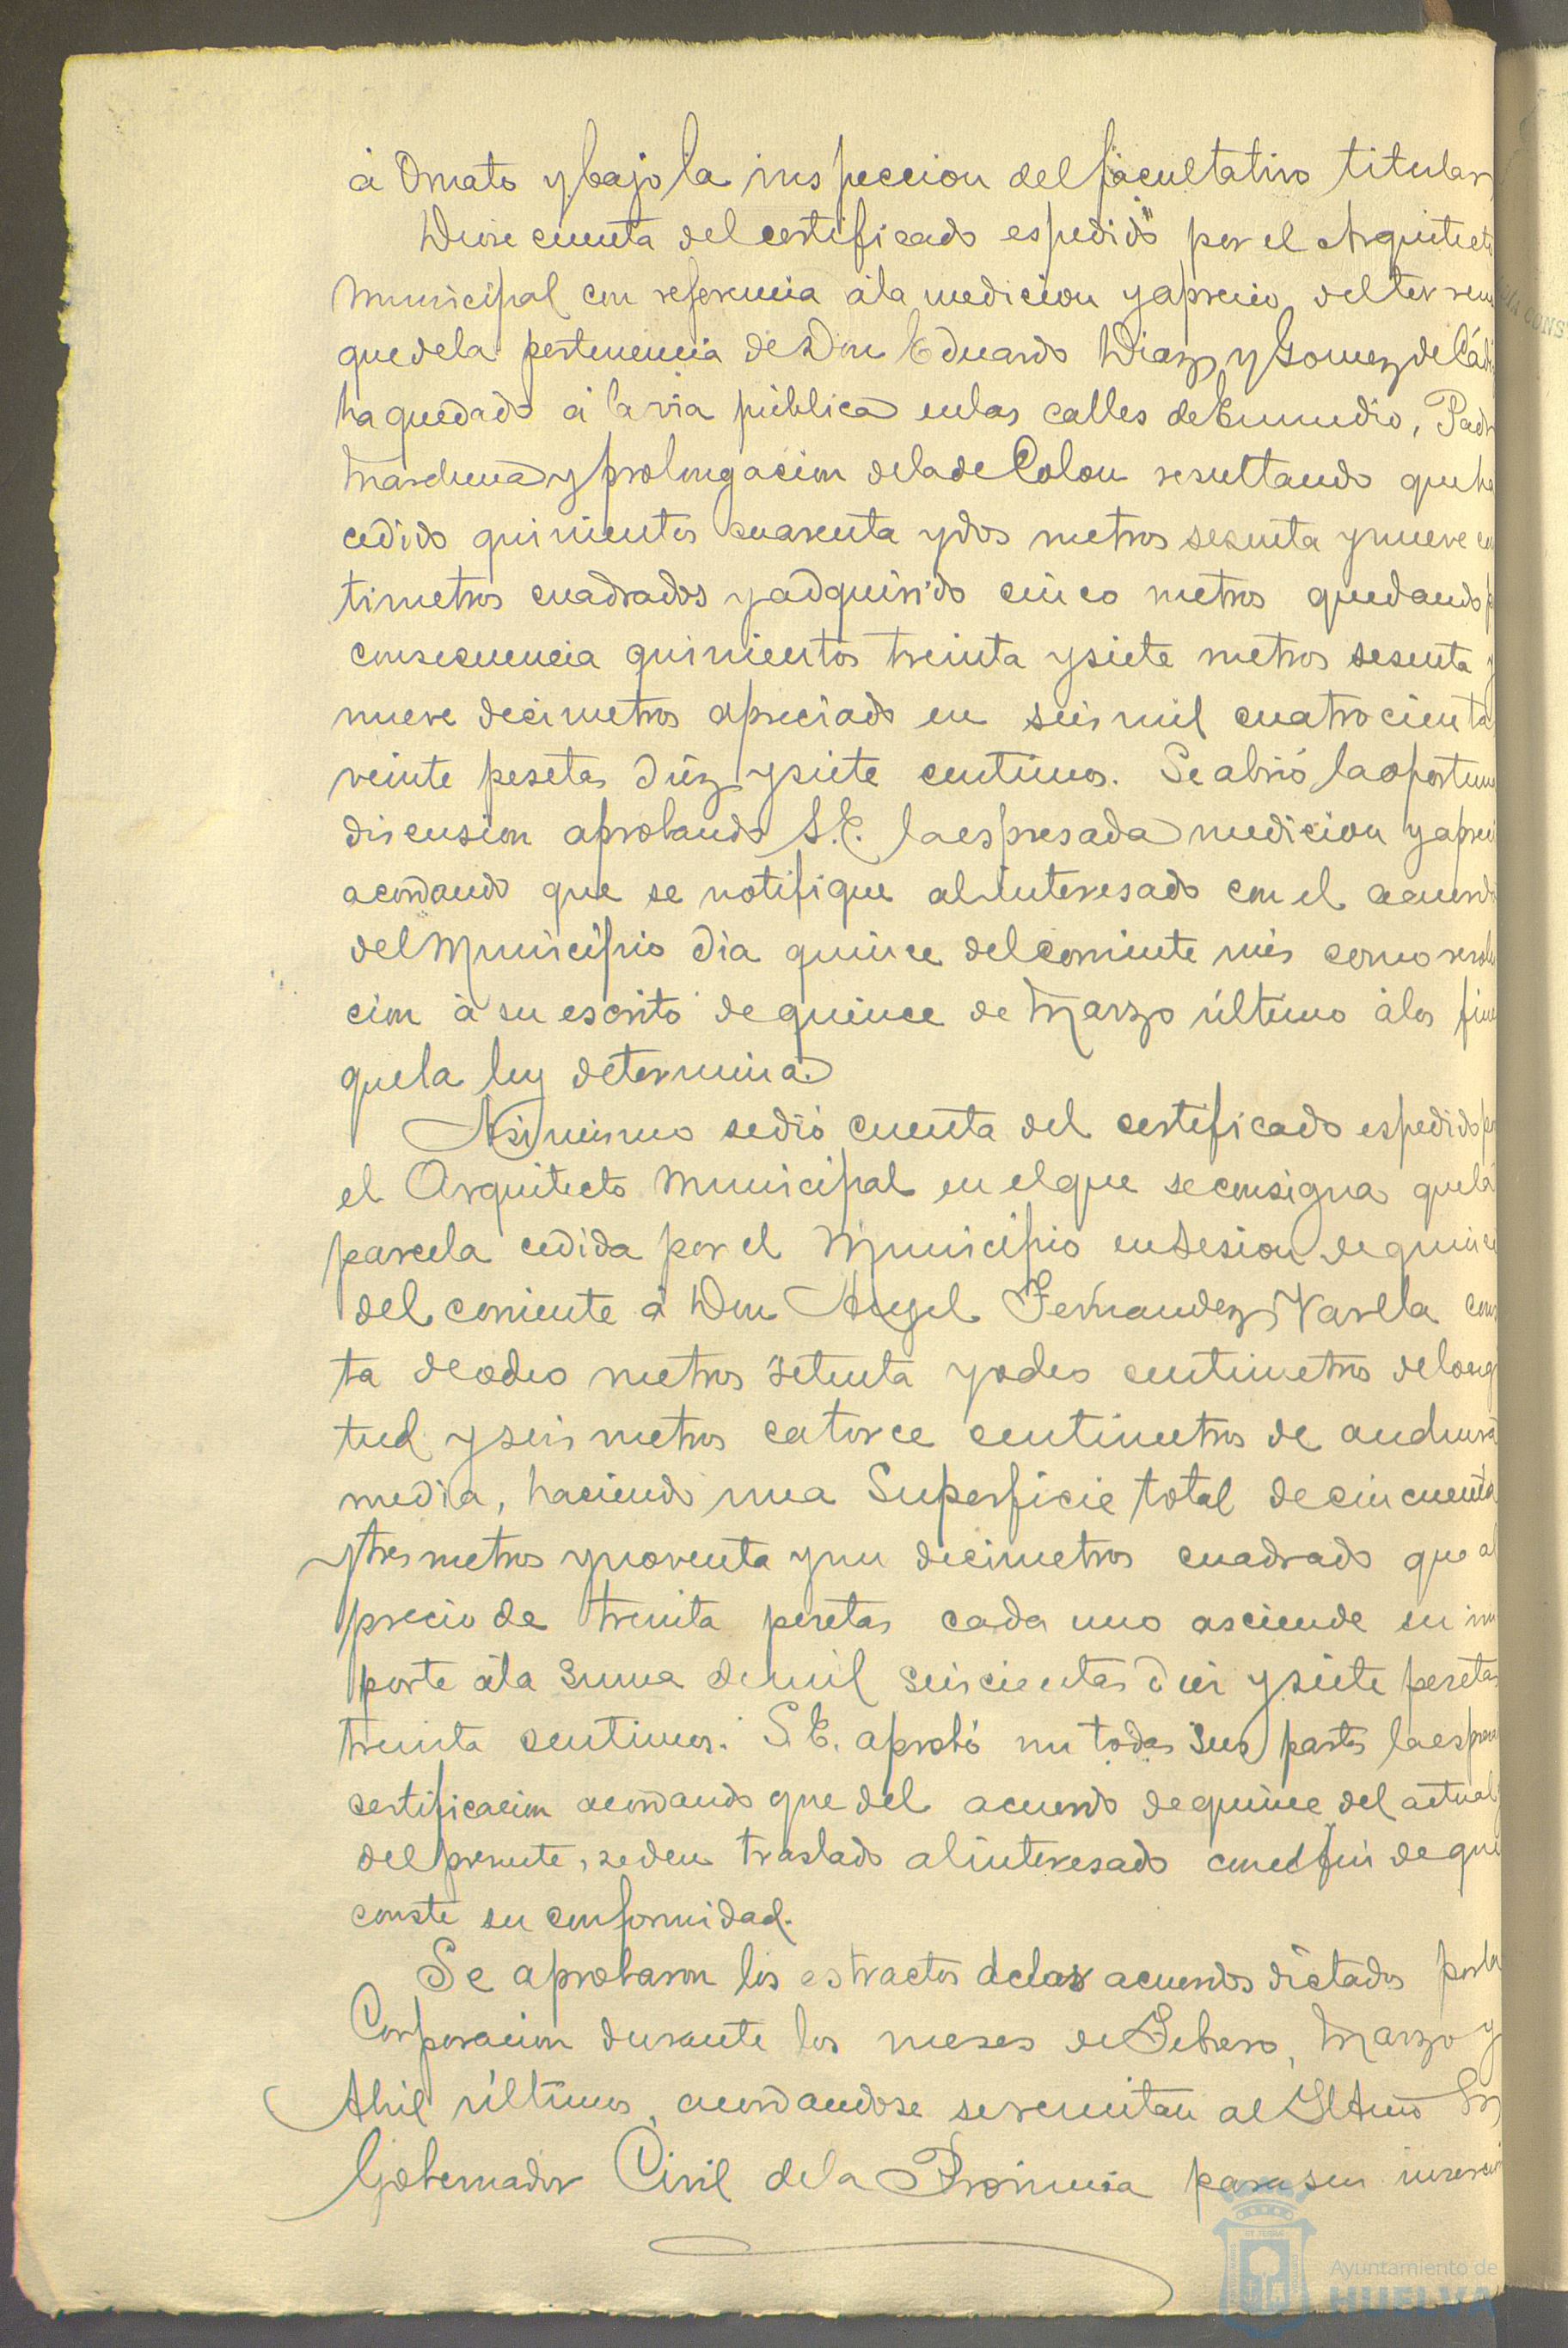 á Ornato y bajo la inspeccion del facultativo titular
Diose cuenta del certificado espedido por el Arquitecto
Municipal con referencia á la medicion y aprecio del terreno
que de la pertenencia de Don Eduardo Diaz y Gomez de Cádi
ha quedado á la via pública en las calles de Enmedio, Padr
Marchena y prolongacion de la de Colon resultando que ha
cedido quinientos cuarenta y dos metros sesenta y nueve cen
timetros cuadrados y adquirido cinco metros quedando p
consecuencia quinientos treinta y siete metros sesenta y
nueve decimetros apreciado en seis mil cuatrocienta
veinte pesetas diez y siete centimos. Se abrió la oportuna
discusion aprobando S.E. la espresada medicion y apreci
acordando que se notifique al interesado con el acuerdo
del Municipio dia quince del corriente mes como resolu
cion á su escrito de quince de Marzo último á los fines
que la ley determina.
Asi mismo se dió cuenta del certificado espedido por
el Arquitecto Municipal en el que se consigna que la
parcela cedida por el Municipio en sesion de quince
del corriente á Don Angel Fernandez Varela cons
ta de ocho metros setenta y ocho centimetros de longi
tud y seis metros catorce centimetros de anchura
media, haciendo una Superficie total de cincuenta
y tres metros y noventa y un decimetros cuadrado que al
precio de treinta pesetas cada uno asciende su im
porte á la suma de mil seiscientas diez y siete pesetas
treinta centimos. S.E. aprobó en todas sus partes la espresa
certificacion acordando que del acuerdo de quince del actual y
del presente, se den traslado al interesado con el fin de que
conste su conformidad.
Se aprobaron los estractos de los acuerdos dictados por la
Corporacion durante los meses de Febrero, Marzo y
Abril últimos, acordandose se remitan al Iltmo Sr
Gobernador Civil de la Provincia para su insercion
Ayuntamiento de
HUELVA